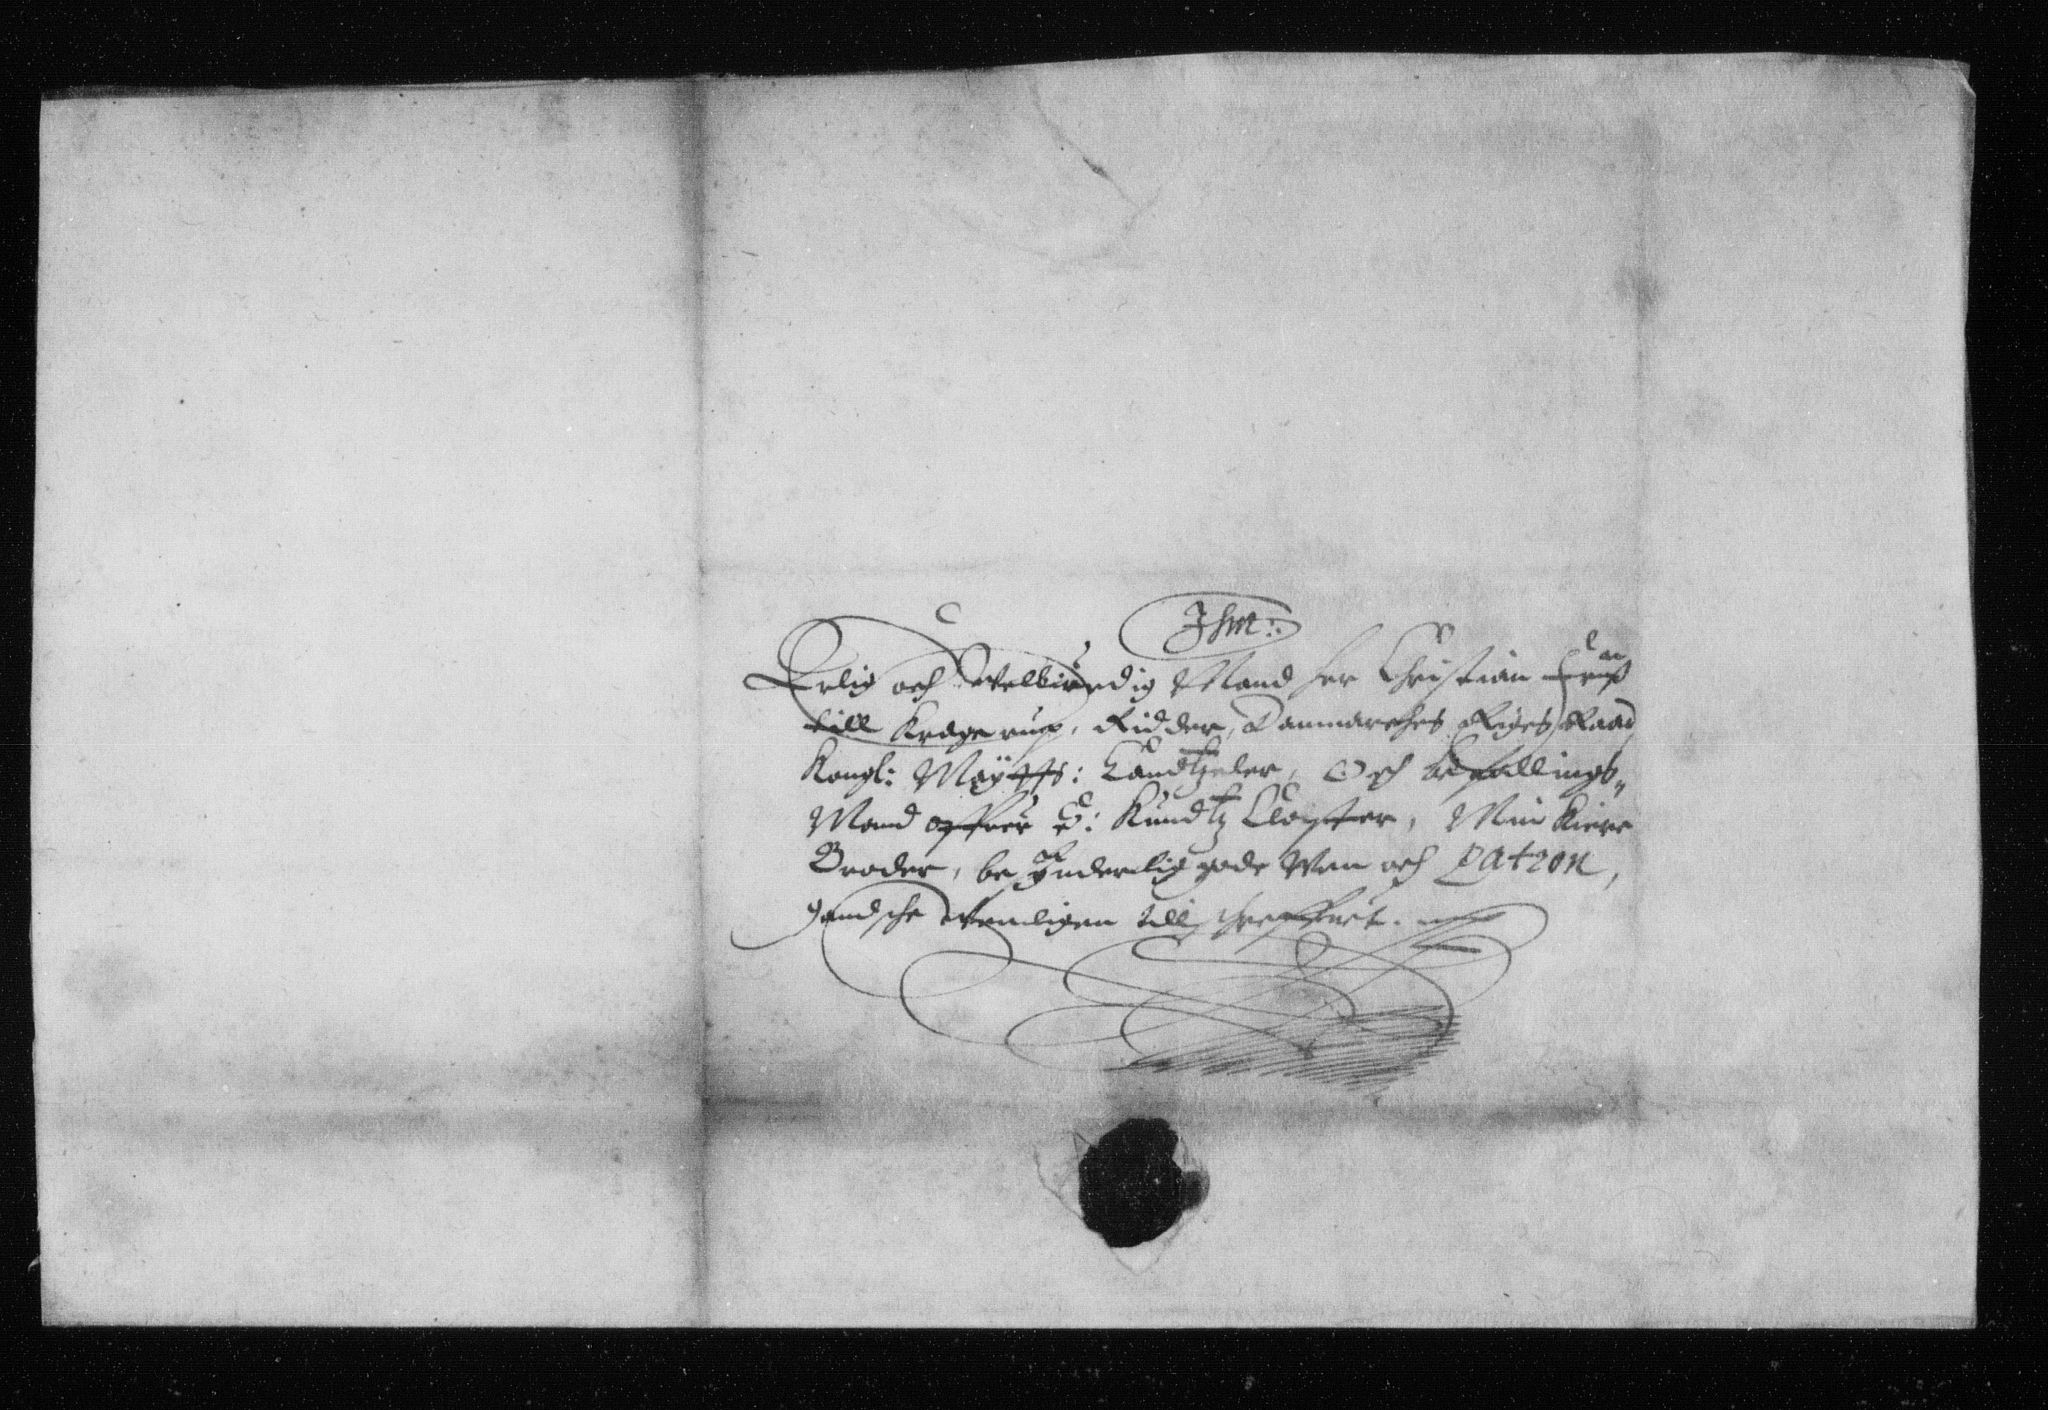 Jhm:
Erlig och Velbiurdig Mand Her Christian Friiß
till Kragerup, Ridder, Danmarches Riges Raad
Kongl: Maytts: Candtzeler, Och befallings-
Mand offuer S: Knudtz Closter, Min kiere
Broder, besynderlig gode Ven och Patron,
gandsche Venligen tillschreffuet.